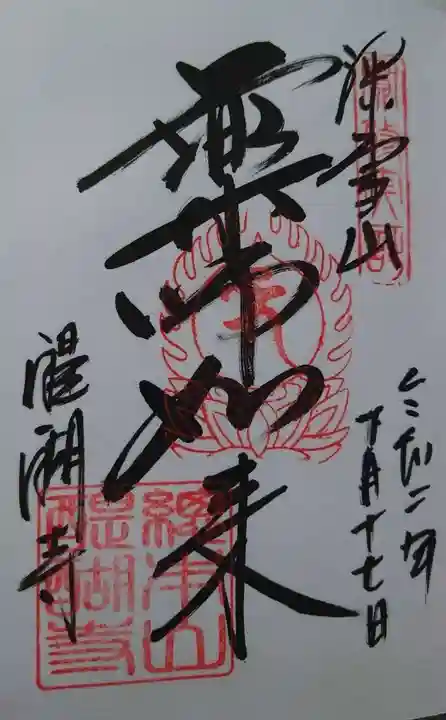 深雪山
薬師如来
醍醐寺
令和二年
十月十七日
醍醐寺